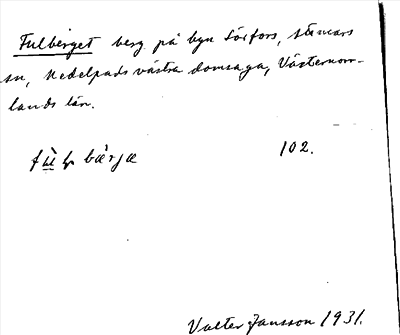 Fulberget berg på byn Sörfors, Attmars
sn, Medelpads västra domsaga, Västernorr-
lands län.
bärjæ 102.
Valter Jansson 1931.